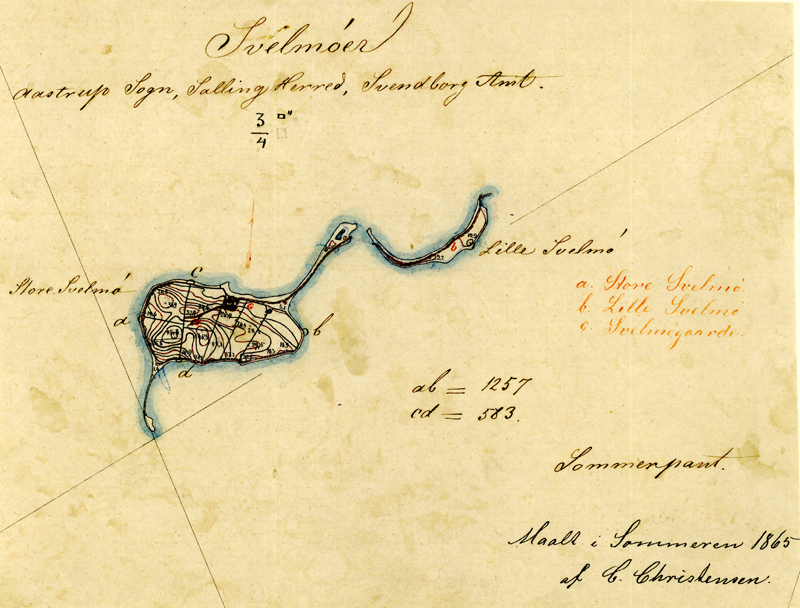 Svelmöer
Aastrup Sogn, Salling Herred, Svendborg Amt.
3/4 □"
Lille Svelmö
Store Svelmö
a. Store Svelmö.
b. Lille Svelmö
c. Svelmögaarde.
c
a
b
d
b
ab = 1257
cd = 583.
Sommerpant.
Maalt i Sommeren 1865
af C. Christensen.